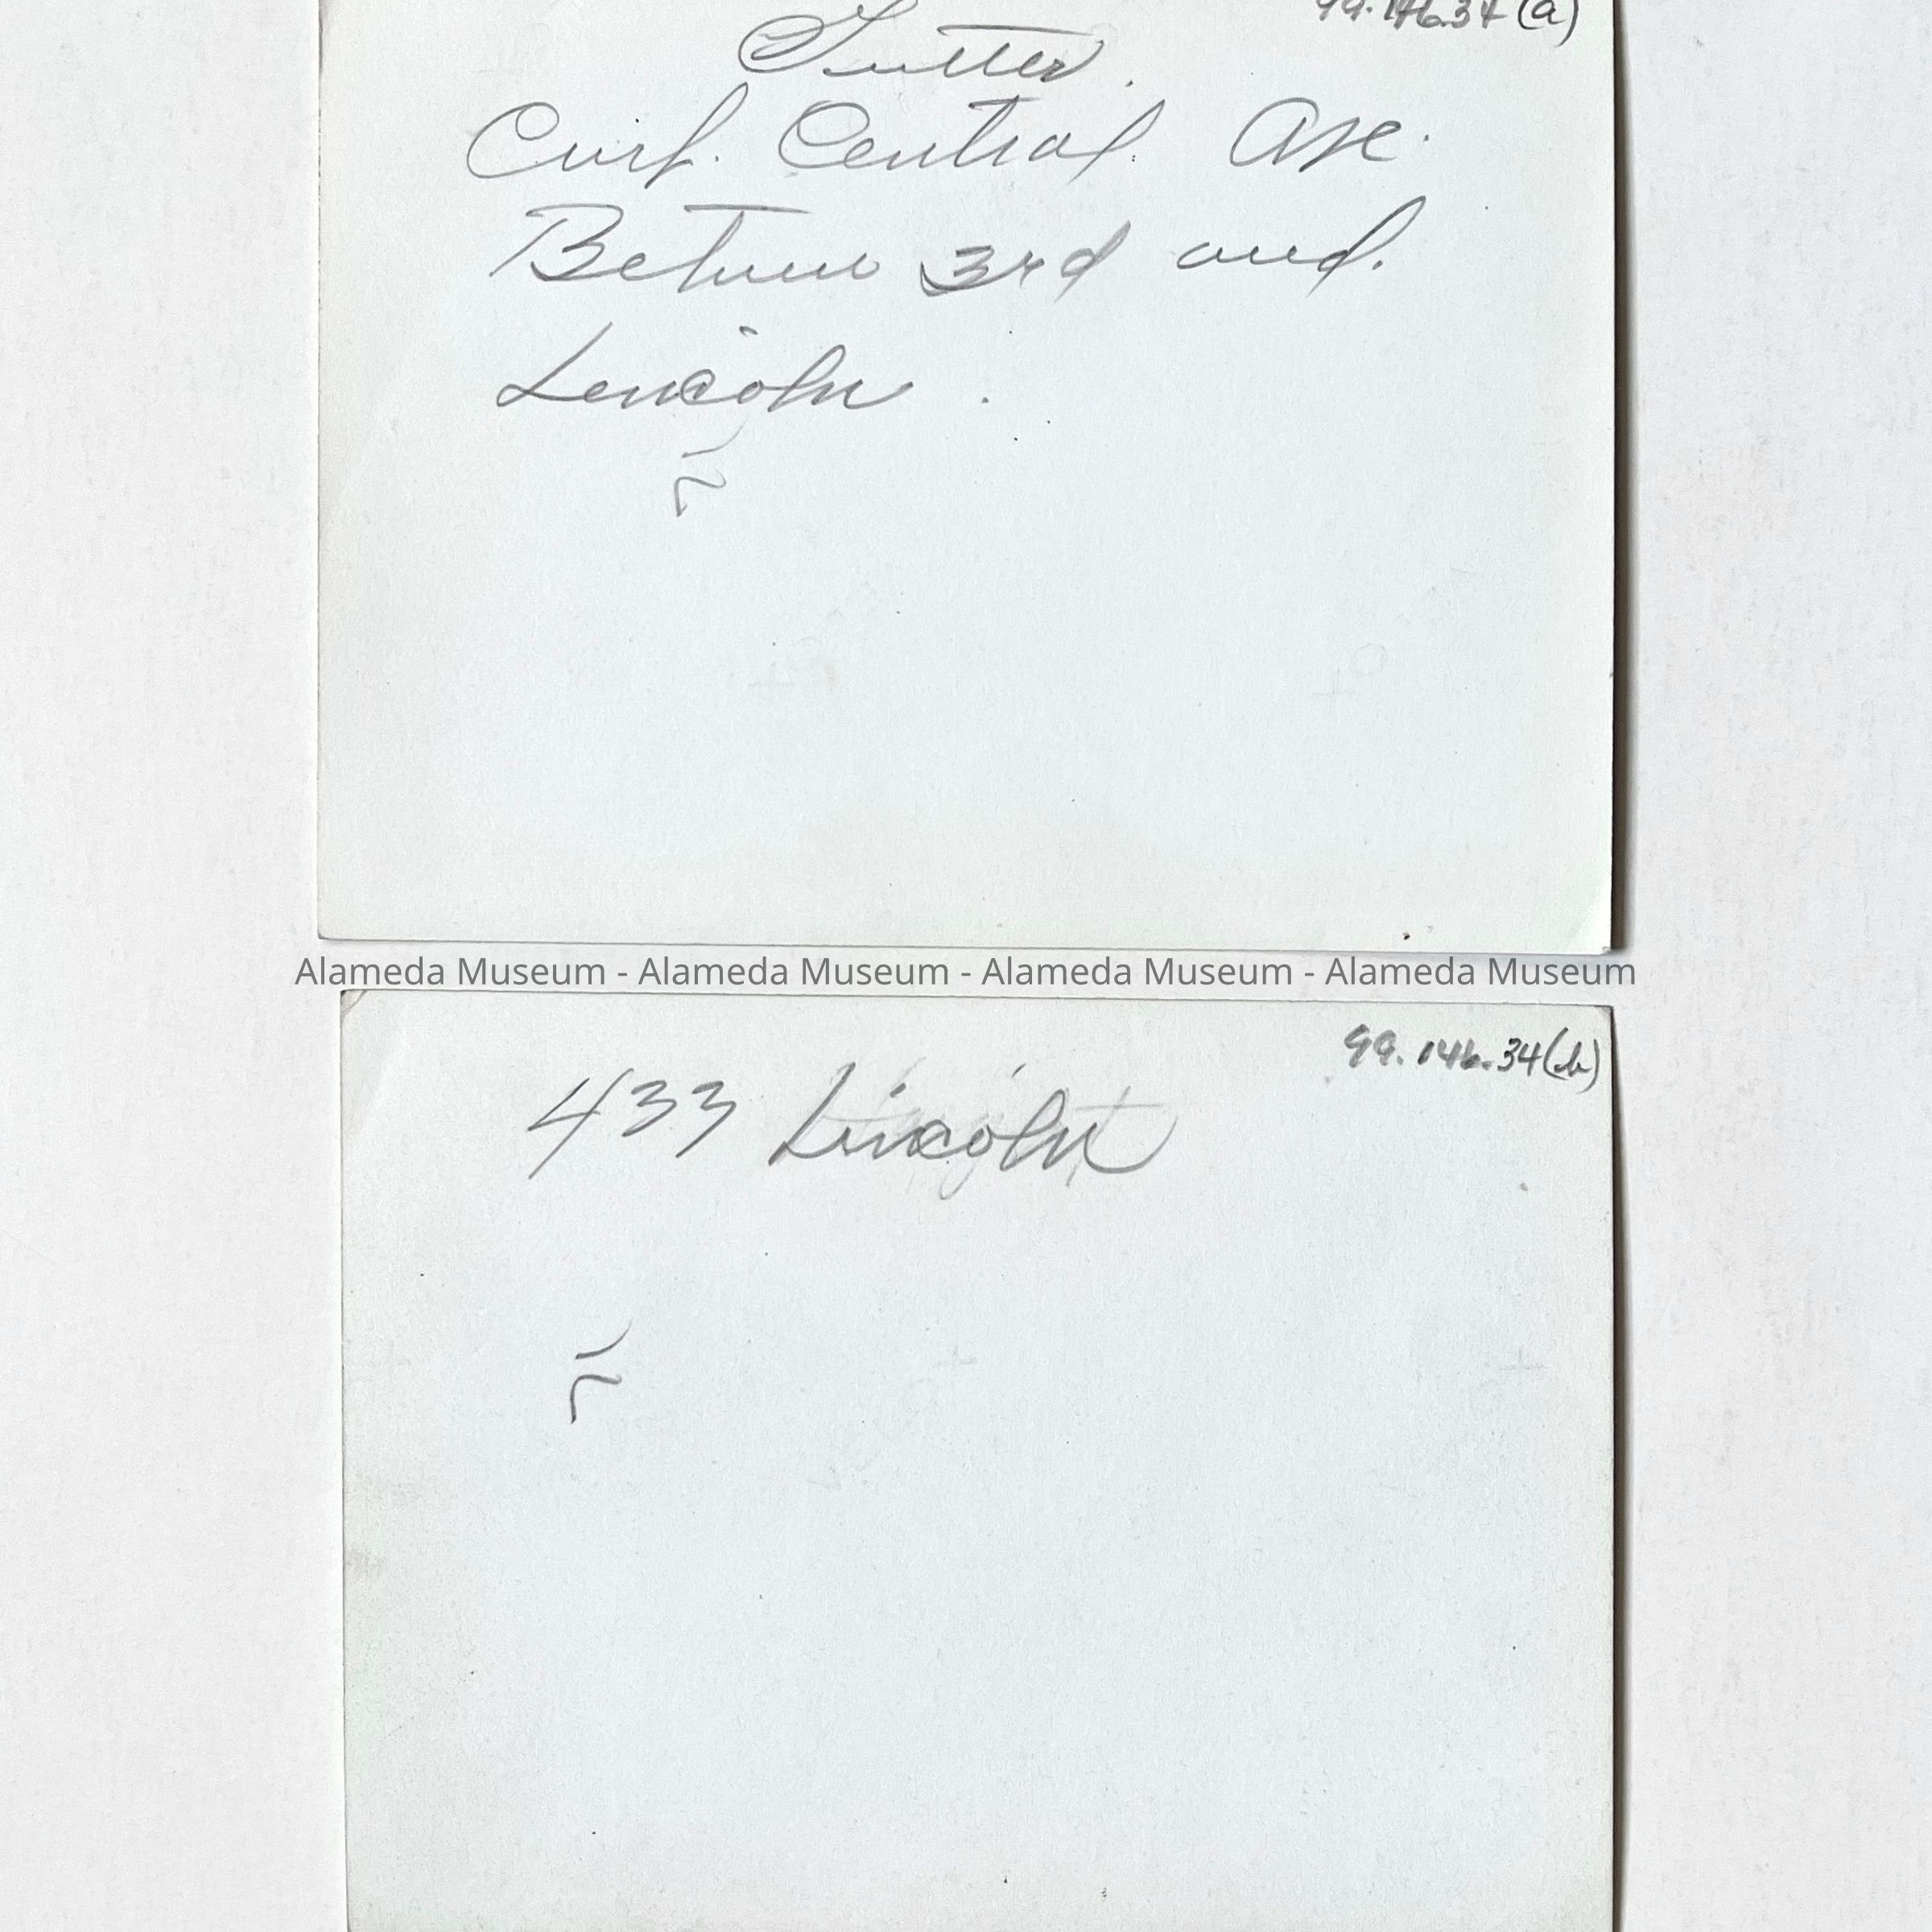 99.146.34(a)
Gutter.
Curb. Central Ave.
Between 3rd and.
Lincoln.
Alameda Museum - Alameda Museum - Alameda Museum - Alameda Museum
99.146.34(b)
433 Lincoln